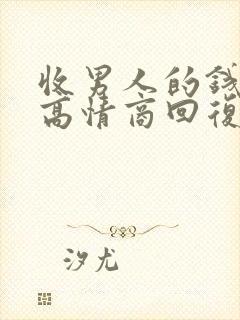 收男人的錢
高情商回復
汐尤